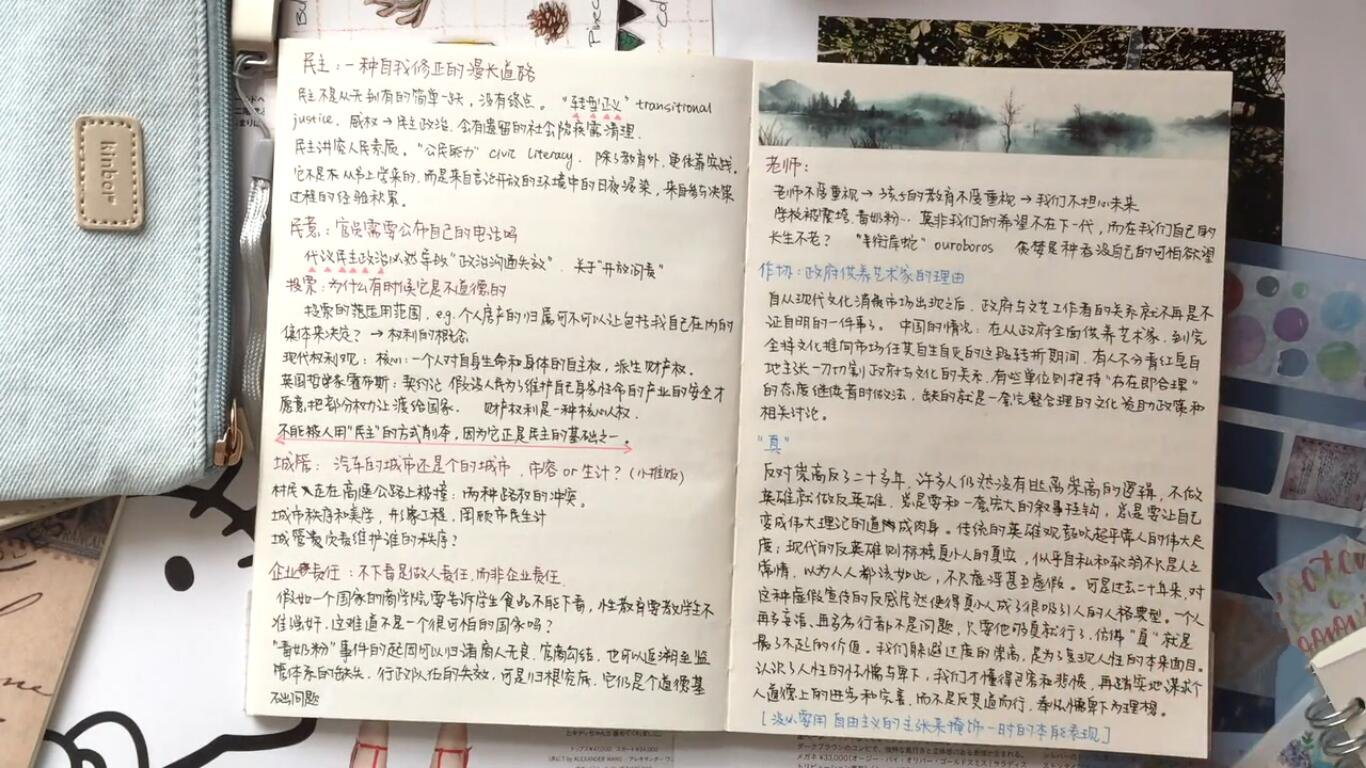 民主：一种自我修正的漫长道路
民主不是从无到有的简单一跃，没有终点。“转型正义” transitional
justice. 威权→民主政治. 会有遗留的社会陈疾需清理.
民主讲究人民素质。“公民能力” civic literacy. 除了教育外，更依靠实践.
它不是从书上学来的，而是来自言论开放的环境中的日夜浸染，来自参与决策
过程的经验积累。
民意：官员需要公布自己的电话吗
代议民主政治必然导致“政治沟通失效”. 关于“开放问责”
投票：为什么有时候它是不道德的
投票的适用范围，e.g.个人房产的归属可不可以让包括我自己在内的
集体来决定？→权利的概念
现代权利观：核心：一个人对自身生命和身体的自主权，派生财产权.
英国哲学家霍布斯：契约论 假设人民为了维护自己身家性命的产业的安全才
愿意把部分权力让渡给国家. 财产权利是一种核心人权.
不能被人用“民主”的方式削夺，因为它正是民主的基础之一。
城管：汽车的城市还是个的城市，市容 or 生计？(小摊贩)
村民走在高速公路上被撞：两种路权的冲突。
城市秩序和美学，形象工程，罔顾市民生计
城管负责维护谁的秩序？
企业责任：不下毒是做人责任，而非企业责任.
假如一个国家的商学院要告诉学生食品不能下毒，性教育要教学生不
准强奸，这难道不是一个很可怕的国家吗？
“毒奶粉”事件的起因可以归淆商人无良，官商勾结，也可以追溯至监
管体系的缺失，行政队伍的失效，可是归根究底，它仍是个道德基
石出问题
老师：
老师不受重视→孩子的教育不受重视→我们不担心未来
学校被震垮，毒奶粉… 莫非我们的希望不在下一代，而在我们自己的
长生不老？ “ ” ouroboros 贪婪是种吞没自己的可怕欲望
作协：政府供养艺术家的理由
自从现代文化消费市场出现之后，政府与文艺工作者的关系就不再是不
证自明的一件事了。中国的情况：在从政府全面供养艺术家，到完
全将文化推向市场任其自生自灭的这段转折期间，有人不分青红皂白
地主张一刀切割政府与文化的关系，有些单位则把持“存在即合理”
的态度继续昔时做法，缺的就是一套完整合理的文化资助政策和
相关讨论。
“真”
反对崇高反了二十多年，许多人仍然没有逃离崇高的逻辑，不做
英雄就做反英雄，总是要和一套宏大的叙事挂钩，总是要让自己
变成伟大理论的道成肉身。传统的英雄观鼓吹超乎常人的伟大尺
度；现代的反英雄则标榜真小人的真实，似乎自私和软弱不只是人之
常情，以为人人都该如此，不尺虚浮甚至虚假。可是过去二十几年来，对
这种虚假宣传的反感居然使得真小人成了很吸引人的人格典型。一个人
再多妄语、再多劣行都不是问题，只要他够真就行了，仿佛“真”就是
最了不起的价值。我们躲避过度的崇高，是为了复现人性的本来面目。
认识了人性的怯懦与卑下，我们才懂得包容和悲悯，再踏实地谋求个
人道德上的进步和完善，而不是反其道而行，奉怯懦卑下为理想。
[没必要用自由主义的主张来掩饰一时的本能表现]
kinbor